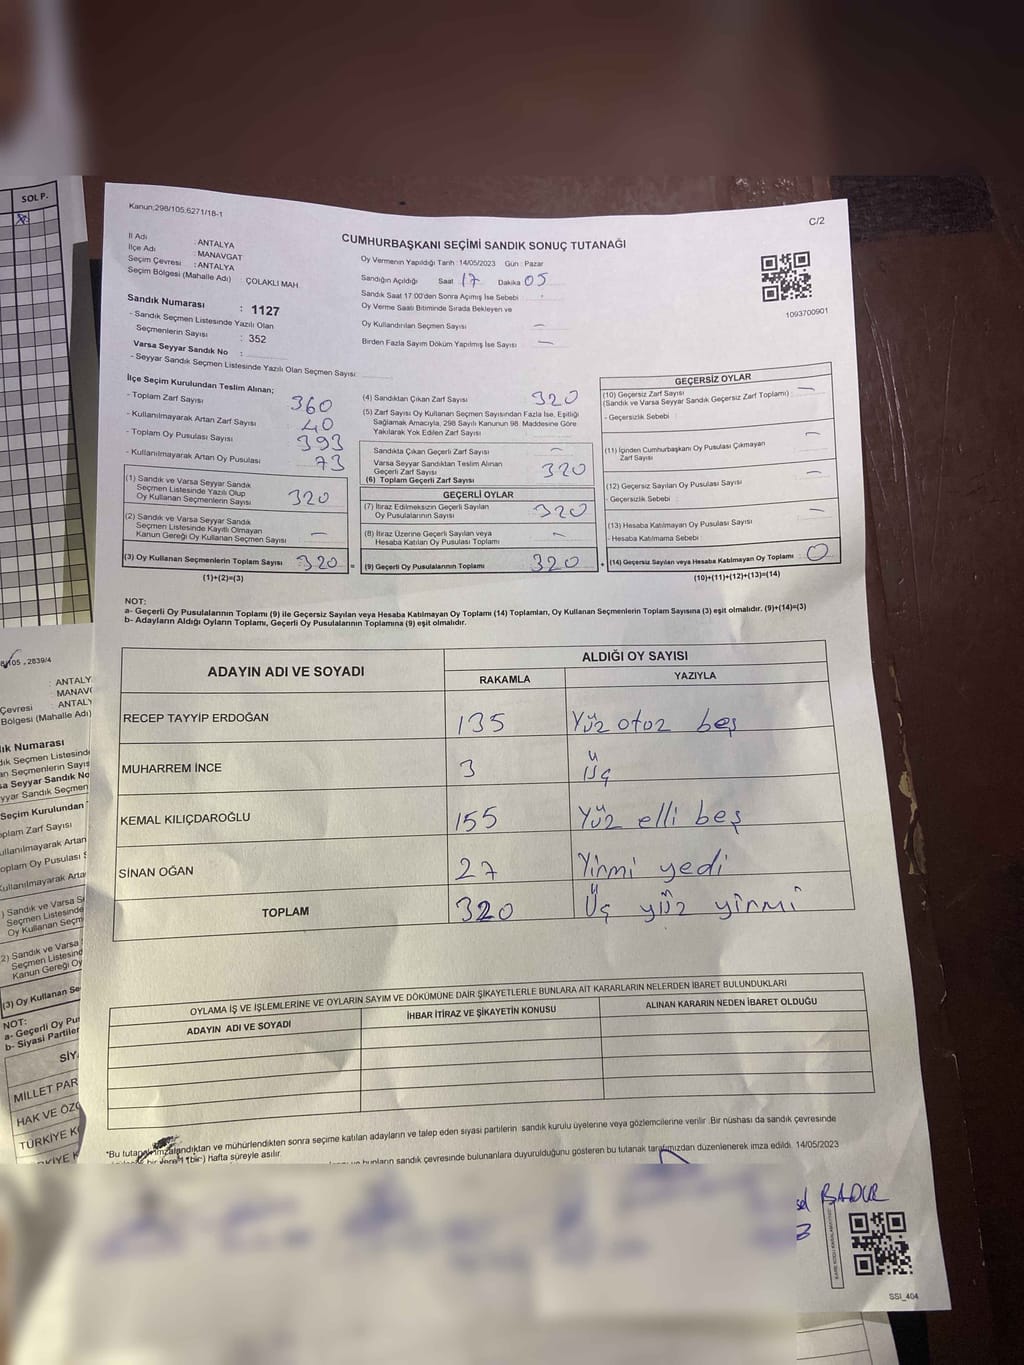 SOL P.
Kanun;298/105;6271/18-1
C/2
İl Adı : ANTALYA
İlçe Adı : MANAVGAT
Seçim Çevresi : ANTALYA
Seçim Bölgesi (Mahalle Adı) : ÇOLAKLI MAH
CUMHURBAŞKANI SEÇİMİ SANDIK SONUÇ TUTANAĞI
Oy Vermenin Yapıldığı Tarih :14/05/2023 Gün : Pazar
Sandığın Açıldığı Saat 17 Dakika 05
Sandık Saat 17:00'den Sonra Açımış İse Sebebi :
Oy Verme Saati Bitiminde Sırada Bekleyen ve
Oy Kullandırılan Seçmen Sayısı —
Birden Fazla Sayım Döküm Yapılmış İse Sayısı —
1093700901
Sandık Numarası : 1127
- Sandık Seçmen Listesinde Yazılı Olan
Seçmenlerin Sayısı : 352
Varsa Seyyar Sandık No :
- Seyyar Sandık Seçmen Listesinde Yazılı Olan Seçmen Sayısı:
İlçe Seçim Kurulundan Teslim Alınan;
- Toplam Zarf Sayısı 360
- Kullanılmayarak Artan Zarf Sayısı 40
- Toplam Oy Pusulası Sayısı 393
- Kullanılmayarak Artan Oy Pusulası 73
(1) Sandık ve Varsa Seyyar Sandık
Seçmen Listesinde Yazılı Olup
Oy Kullanan Seçmenlerin Sayısı 320
(2) Sandık ve Varsa Seyyar Sandık
Seçmen Listesinde Kayıtlı Olmayan
Kanun Gereği Oy Kullanan Seçmen Sayısı —
(3) Oy Kullanan Seçmenlerin Toplam Sayısı 320 =
(1)+(2)=(3)
(4) Sandıktan Çıkan Zarf Sayısı 320
(5) Zarf Sayısı Oy Kullanan Seçmen Sayısından Fazla İse, Eşitliği
Sağlamak Amacıyla, 298 Sayılı Kanunun 98. Maddesine Göre
Yakılarak Yok Edilen Zarf Sayısı
Sandıkta Çıkan Geçerli Zarf Sayısı —
Varsa Seyyar Sandıktan Teslim Alınan
Geçerli Zarf Sayısı
(6) Toplam Geçerli Zarf Sayısı 320
GEÇERLİ OYLAR
(7) İtiraz Edilmeksizin Geçerli Sayılan
Oy Pusulalarının Sayısı 320
(8) İtiraz Üzerine Geçerli Sayılan veya
Hesaba Katılan Oy Pusulası Toplamı —
(9) Geçerli Oy Pusulalarının Toplamı 320 +
GEÇERSİZ OYLAR
(10) Geçersiz Zarf Sayısı —
(Sandık ve Varsa Seyyar Sandık Geçersiz Zarf Toplamı)
- Geçersizlik Sebebi :
(11) İçinden Cumhurbaşkanı Oy Pusulası Çıkmayan —
Zarf Sayısı
(12) Geçersiz Sayılan Oy Pusulası Sayısı —
- Geçersizlik Sebebi :
(13) Hesaba Katılmayan Oy Pusulası Sayısı —
- Hesaba Katılmama Sebebi :
(14) Geçersiz Sayılan veya Hesaba Katılmayan Oy Toplamı : 0
(10)+(11)+(12)+(13)=(14)
NOT:
a- Geçerli Oy Pusulalarının Toplamı (9) ile Geçersiz Sayılan veya Hesaba Katılmayan Oy Toplamı (14) Toplamları, Oy Kullanan Seçmenlerin Toplam Sayısına (3) eşit olmalıdır. (9)+(14)=(3)
b- Adayların Aldığı Oyların Toplamı, Geçerli Oy Pusulalarının Toplamına (9) eşit olmalıdır.
ADAYIN ADI VE SOYADI
ALDIĞI OY SAYISI
RAKAMLA YAZIYLA
RECEP TAYYİP ERDOĞAN 135 Yüz otuz beş
MUHARREM İNCE 3 Üç
KEMAL KILIÇDAROĞLU 155 Yüz elli beş
SİNAN OĞAN 27 Yirmi yedi
TOPLAM 320 Üç yüz yirmi
OYLAMA İŞ VE İŞLEMLERİNE VE OYLARIN SAYIM VE DÖKÜMÜNE DAİR ŞİKAYETLERLE BUNLARA AİT KARARLARIN NELERDEN İBARET BULUNDUKLARI
ADAYIN ADI VE SOYADI İHBAR İTİRAZ VE ŞİKAYETİN KONUSU ALINAN KARARIN NEDEN İBARET OLDUĞU
*Bu tutanak imzalandıktan ve mühürlendikten sonra seçime katılan adayların ve talep eden siyasi partilerin sandık kurulu üyelerine veya gözlemcilerine verilir. Bir nüshası da sandık çevresinde
hafta süreyle asılır.
bunların sandık çevresinde bulunanlara duyurulduğunu gösteren bu tutanak tarafımızdan düzenlenerek imza edildi. 14/05/2023
BADUR
SSI_404
8/105 , 2839/4
: ANTALY
MANAV
ANTALY
Çevresi
Bölgesi (Mahalle Adı)
ık Numarası
dık Seçmen Listesind
an Seçmenlerin Sayıs
sa Seyyar Sandık No
yyar Sandık Seçmen
Seçim Kurulundan
oplam Zarf Sayısı
ullanılmayarak Artan
oplam Oy Pusulası S
Kullanılmayarak Arta
) Sandık ve Varsa S
Seçmen Listesinde
Oy Kullanan Seçm
2) Sandık ve Varsa
Seçmen Listesind
Kanun Gereği Oy
(3) Oy Kullanan Se
NOT:
a- Geçerli Oy Pu
b- Siyasi Partiler
SİY
MİLLET PAR
HAK VE ÖZG
TÜRKİYE K